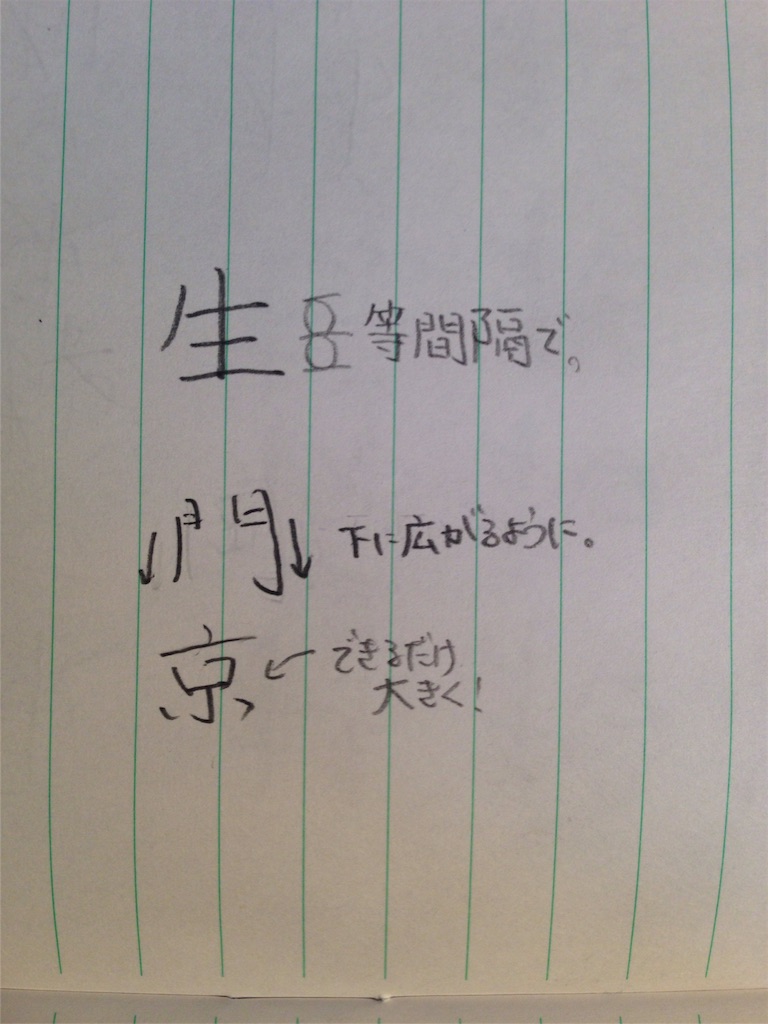 生 等間隔で。
門 下に広がるように。
京 できるだけ
大きく!